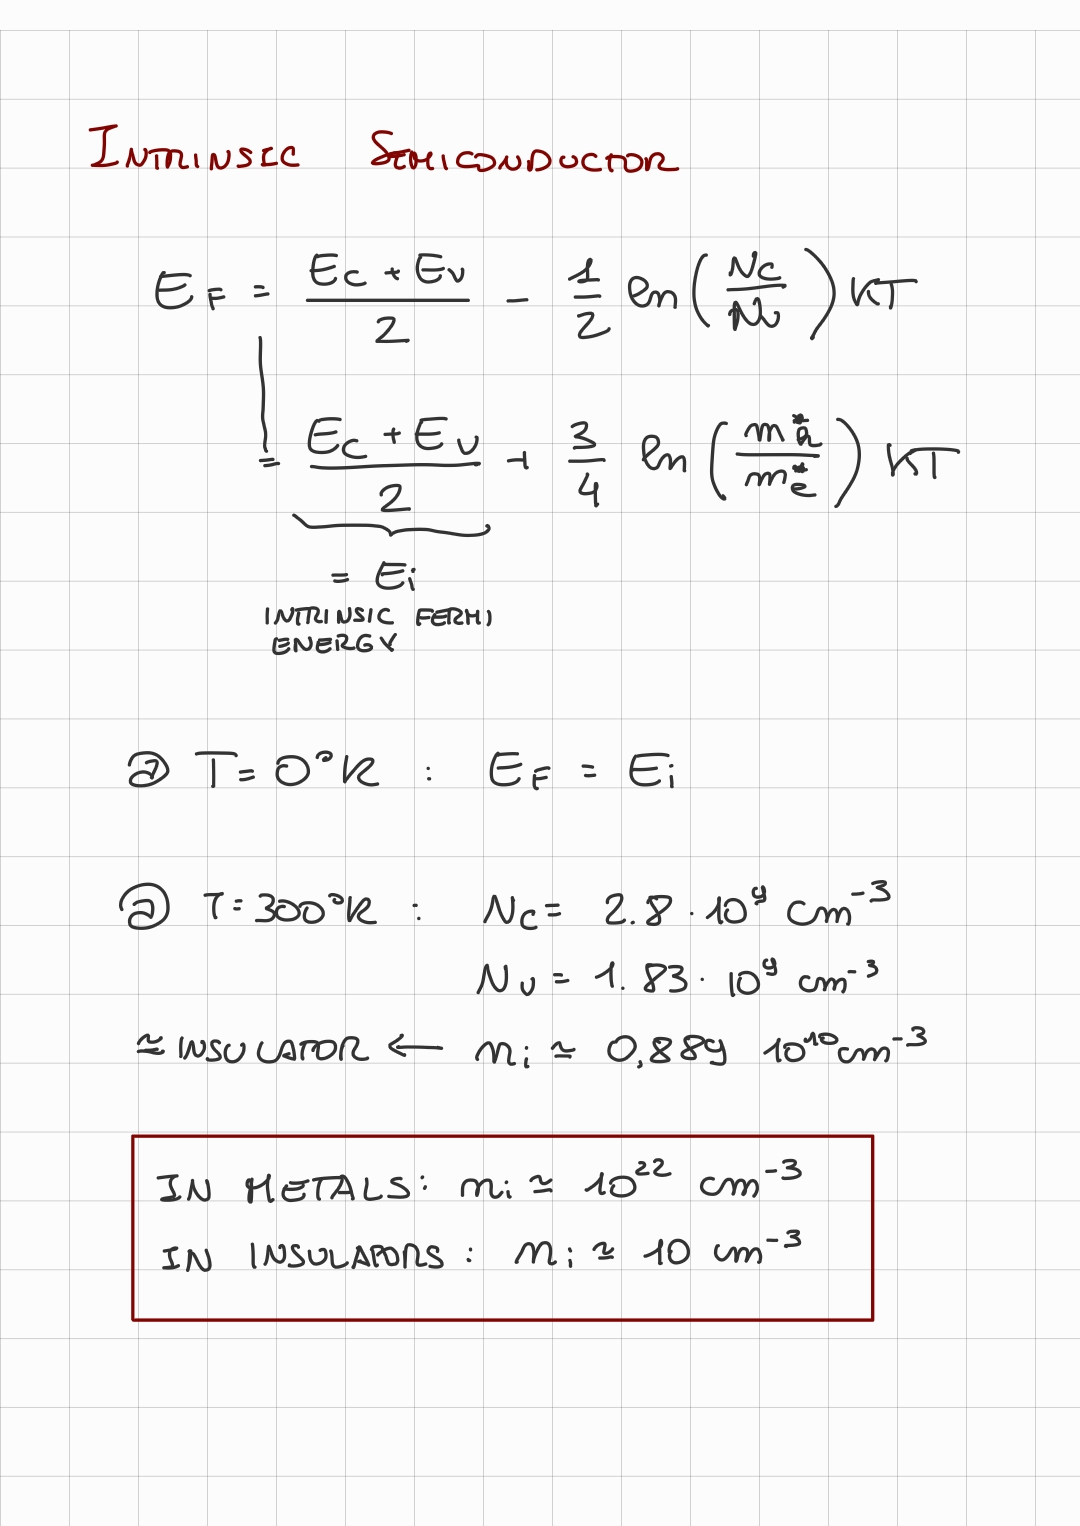 INTRINSIC SEMICONDUCTOR
E_F = (E_C + E_V)/2 - 1/2 ln(N_C/N_V) KT
= (E_C + E_V)/2 + 3/4 ln(m*_h/m*_e) KT
= E_i
INTRINSIC FERMI
ENERGY
@ T = 0°K : E_F = E_i
@ T = 300°K : N_C = 2.8 · 10^9 cm^-3
N_V = 1.83 · 10^9 cm^-3
≃ INSULATOR ← n_i ≃ 0,889 10^10 cm^-3
IN METALS: n_i ≃ 10^22 cm^-3
IN INSULATORS : n_i ≃ 10 cm^-3